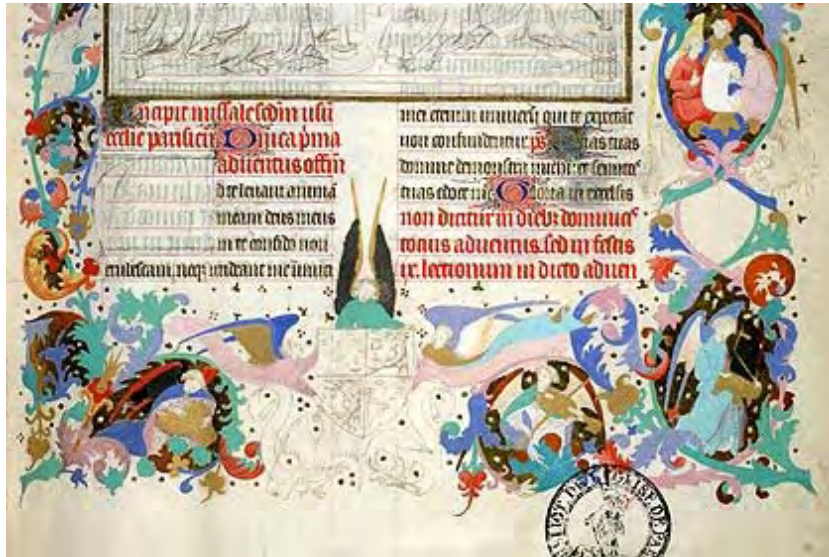 Incipit missale scdm usu
ecclie parisien Dnica pma
aduentus offm
d te leuaui anima
meam deus meus
in te confido non
erubescam, neqz irrideant me inimici
mei etenim uniuersi qui te expectat
non confundentur ps Vias tuas
domine demonstra michi et semitas
tuas edoce me Gloria in excelsis
non dicitur in diebz dominicis
totius aduentus. sed in festis
ix. lectionum in dicto aduen